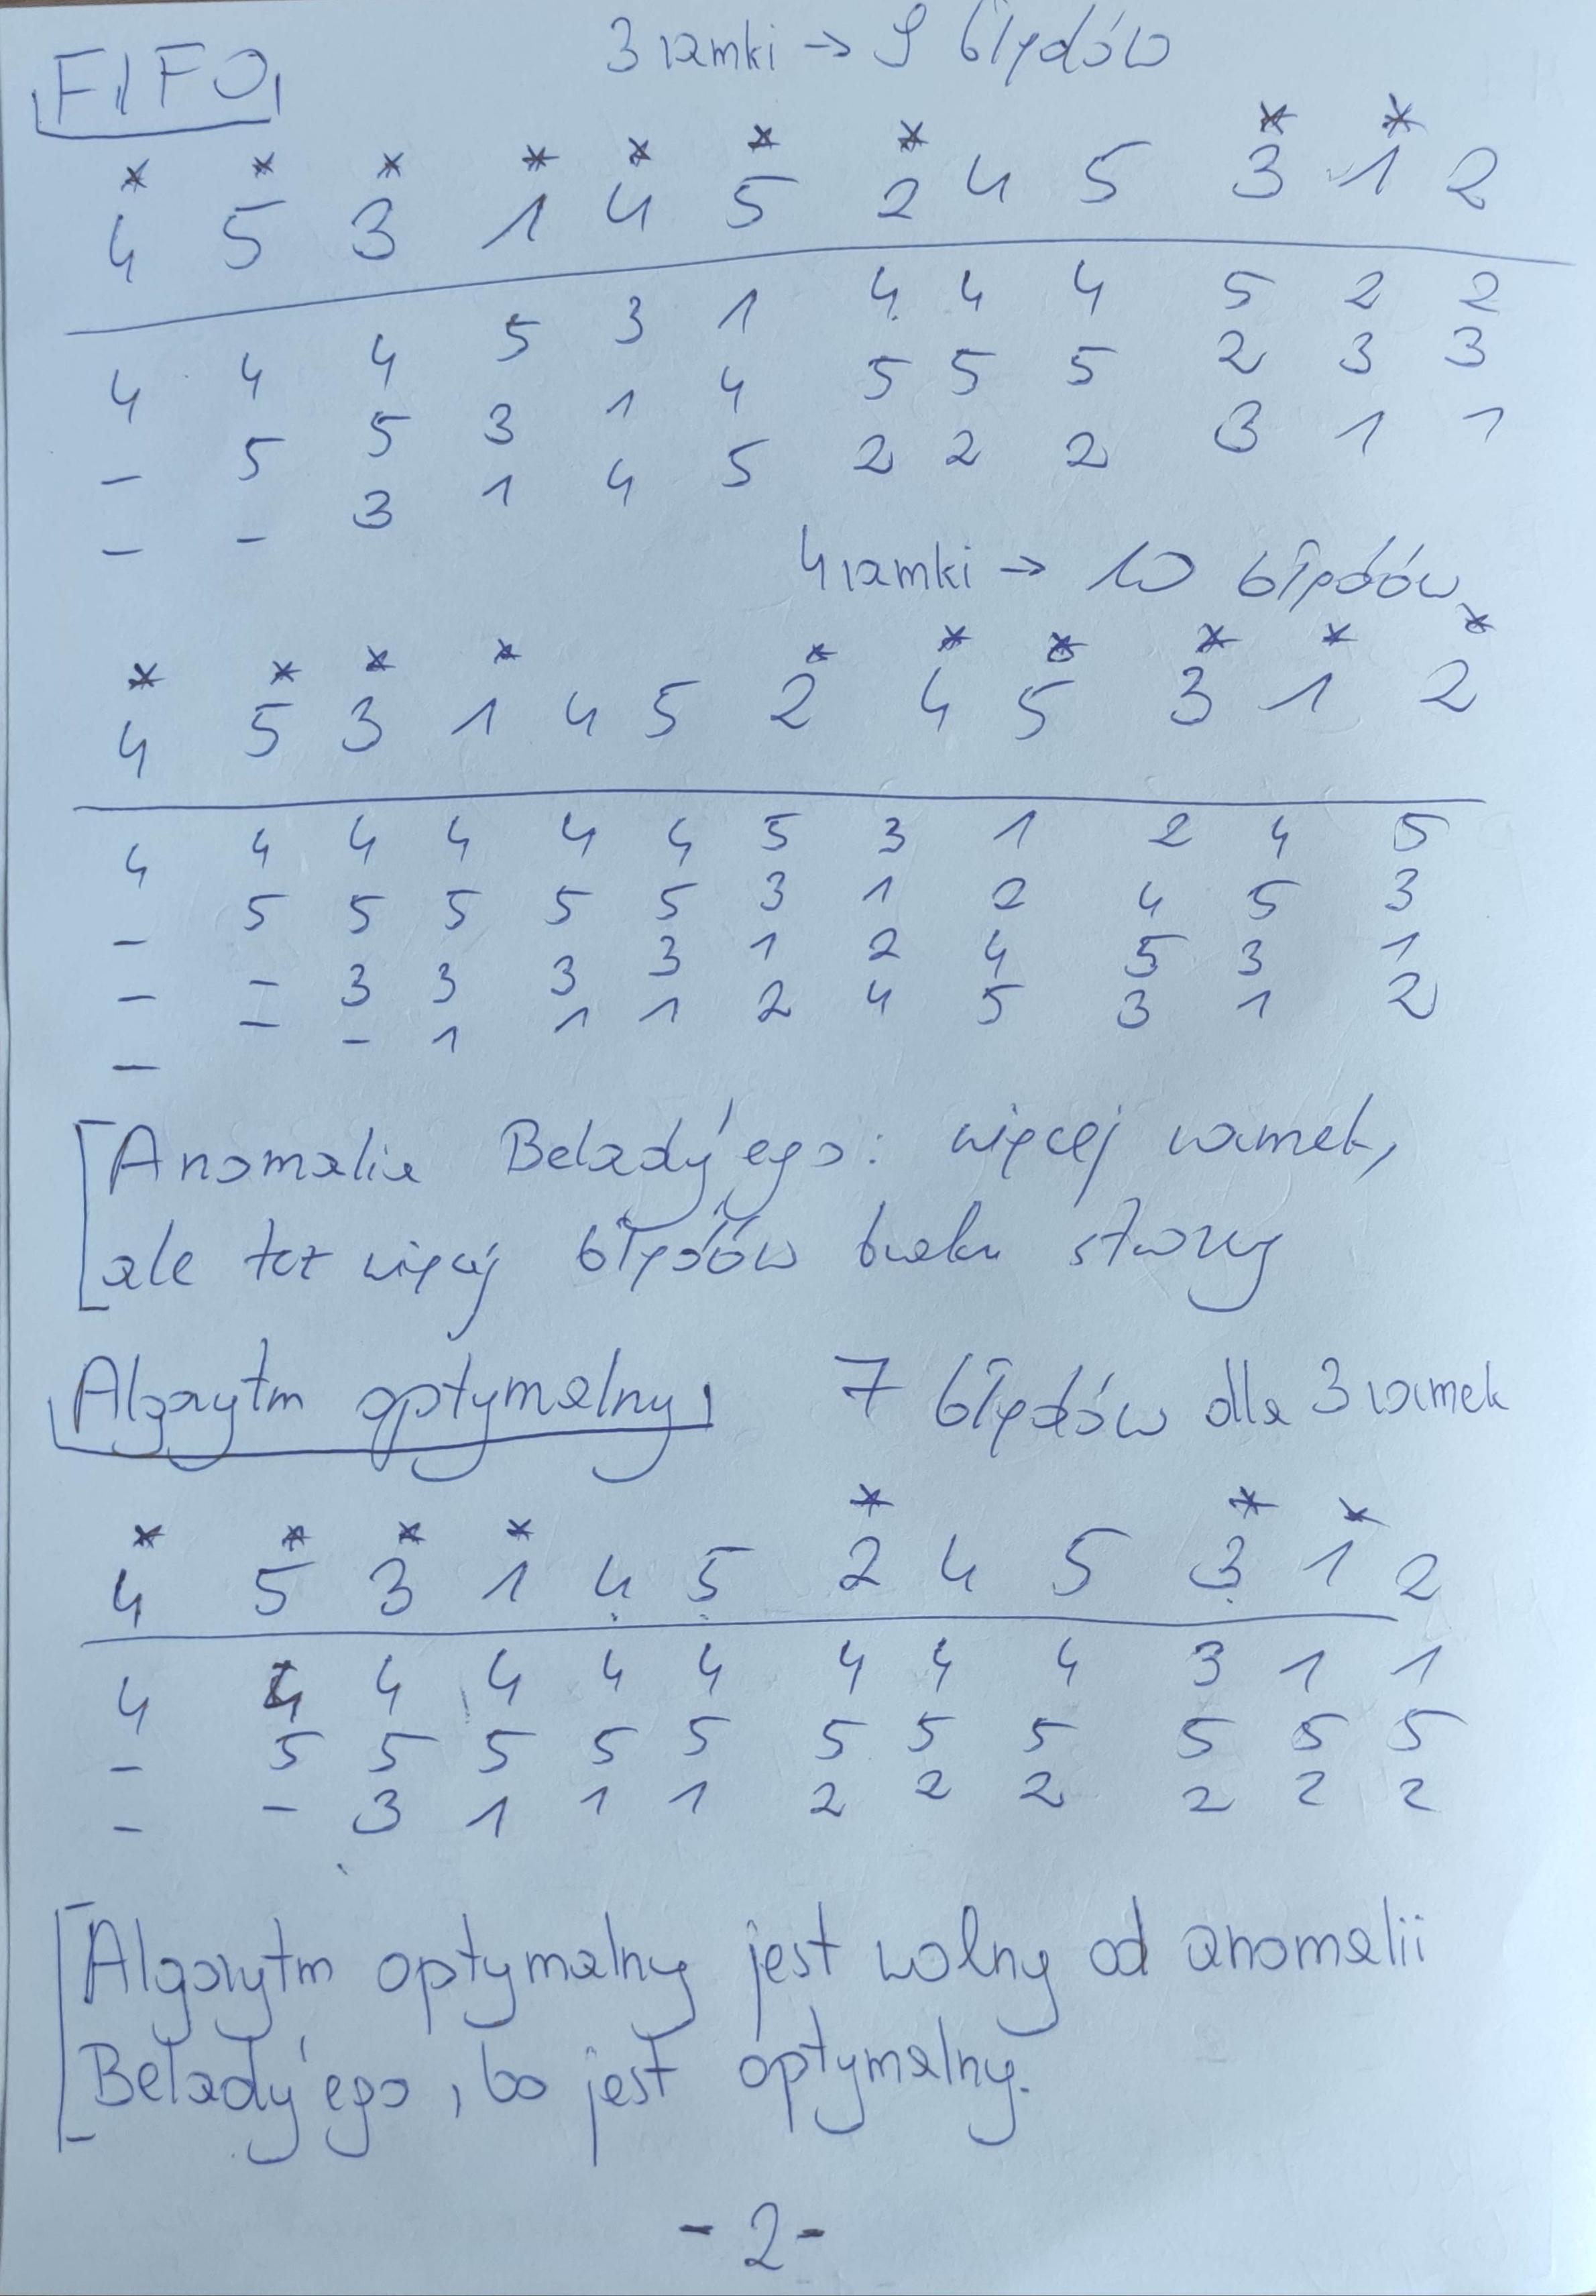 FIFO
3 ramki → 9 błędów
* * * * * * * * *
4 5 3 1 4 5 2 4 5 3 1 2
4 4 4 5 3 1 4 4 4 5 2 2
- 5 5 3 1 4 5 5 5 2 3 3
- - 3 1 4 5 2 2 2 3 1 1
4 ramki → 10 błędów
* * * * * * * * * *
4 5 3 1 4 5 2 4 5 3 1 2
4 4 4 4 4 4 5 3 1 2 4 5
- 5 5 5 5 5 3 1 2 4 5 3
- - 3 3 3 3 1 2 4 5 3 1
- - - 1 1 1 2 4 5 3 1 2
Anomalia Belady'ego: więcej ramek,
ale też więcej błędów braku strony
Algorytm optymalny 7 błędów dla 3 ramek
* * * * * * *
4 5 3 1 4 5 2 4 5 3 1 2
4 4 4 4 4 4 4 4 4 3 1 1
- 5 5 5 5 5 5 5 5 5 5 5
- - 3 1 1 1 2 2 2 2 2 2
Algorytm optymalny jest wolny od anomalii
Belady'ego, bo jest optymalny.
- 2 -